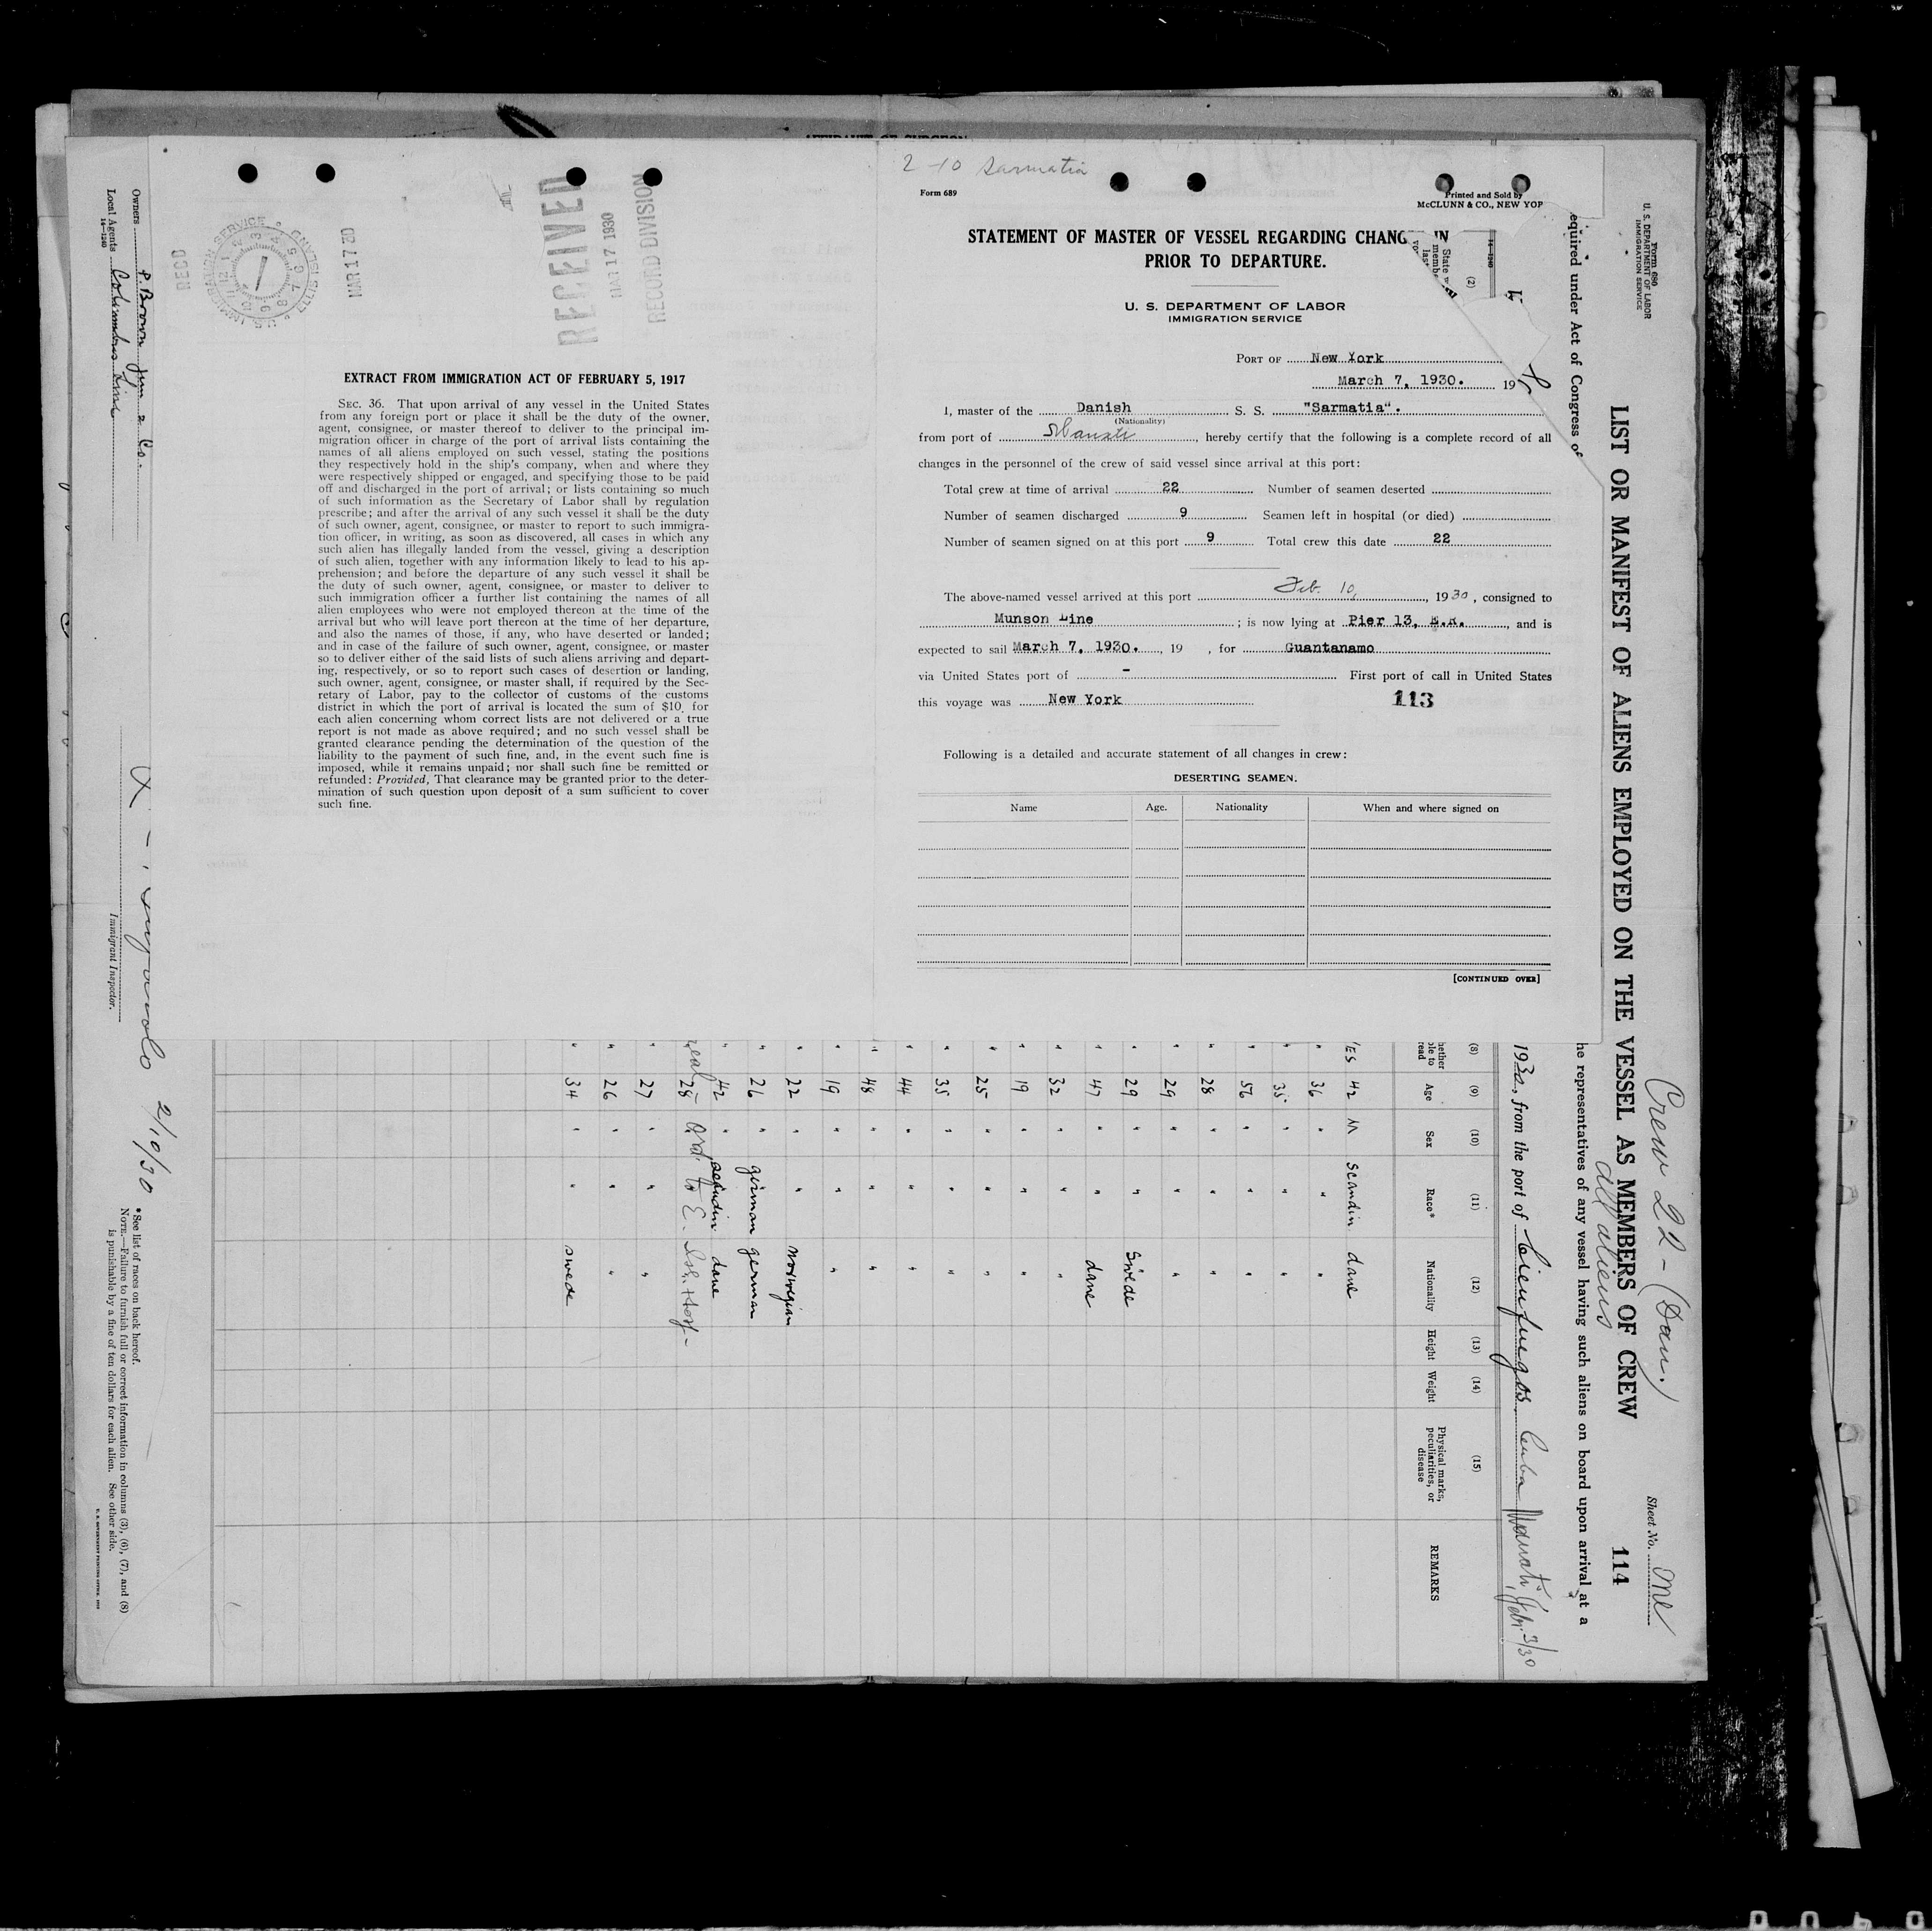 2-10 Sarmatia
Form 689
Printed and Sold by
McCLUNN & CO., NEW YOR
STATEMENT OF MASTER OF VESSEL REGARDING CHANG IN
PRIOR TO DEPARTURE.
U. S. DEPARTMENT OF LABOR
IMMIGRATION SERVICE
PORT OF New York
March 7, 1930. 19
I, master of the Danish S. S. "Sarmatia".
(Nationality)
from port of , hereby certify that the following is a complete record of all
changes in the personnel of the crew of said vessel since arrival at this port:
Total crew at time of arrival 22 Number of seamen deserted
Number of seamen discharged 9 Seamen left in hospital (or died)
Number of seamen signed on at this port 9 Total crew this date 22
The above-named vessel arrived at this port Feb. 10, 1930, consigned to
Munson Line ; is now lying at Pier 13, E.R. , and is
expected to sail March 7, 1930. , 19 , for Guantanamo
via United States port of - First port of call in United States
this voyage was New York 113
Following is a detailed and accurate statement of all changes in crew:
DESERTING SEAMEN.
Name Age. Nationality When and where signed on
[CONTINUED OVER]
RECD
U.S. IMMIGRATION SERVICE
MAR 17 30
RECEIVED
MAR 17 1930
RECORD DIVISION
EXTRACT FROM IMMIGRATION ACT OF FEBRUARY 5, 1917
SEC. 36. That upon arrival of any vessel in the United States
from any foreign port or place it shall be the duty of the owner,
agent, consignee, or master thereof to deliver to the principal im-
migration officer in charge of the port of arrival lists containing the
names of all aliens employed on such vessel, stating the positions
they respectively hold in the ship's company, when and where they
were respectively shipped or engaged, and specifying those to be paid
off and discharged in the port of arrival; or lists containing so much
of such information as the Secretary of Labor shall by regulation
prescribe; and after the arrival of any such vessel it shall be the duty
of such owner, agent, consignee, or master to report to such immigra-
tion officer, in writing, as soon as discovered, all cases in which any
such alien has illegally landed from the vessel, giving a description
of such alien, together with any information likely to lead to his ap-
prehension; and before the departure of any such vessel it shall be
the duty of such owner, agent, consignee, or master to deliver to
such immigration officer a further list containing the names of all
alien employees who were not employed thereon at the time of the
arrival but who will leave port thereon at the time of her departure,
and also the names of those, if any, who have deserted or landed;
and in case of the failure of such owner, agent, consignee, or master
so to deliver either of the said lists of such aliens arriving and depart-
ing, respectively, or so to report such cases of desertion or landing,
such owner, agent, consignee, or master shall, if required by the Sec-
retary of Labor, pay to the collector of customs of the customs
district in which the port of arrival is located the sum of $10 for
each alien concerning whom correct lists are not delivered or a true
report is not made as above required; and no such vessel shall be
granted clearance pending the determination of the question of the
liability to the payment of such fine, and, in the event such fine is
imposed, while it remains unpaid; nor shall such fine be remitted or
refunded: Provided, That clearance may be granted prior to the deter-
mination of such question upon deposit of a sum sufficient to cover
such fine.
Form 680
U. S. DEPARTMENT OF LABOR
IMMIGRATION SERVICE
Crew 22 - (Dan.)
all aliens
Sheet No. One
LIST OR MANIFEST OF ALIENS EMPLOYED ON THE VESSEL AS MEMBERS OF CREW
114
equired under Act of Congress of
he representatives of any vessel having such aliens on board upon arrival at a
1930, from the port of Cienfuegos Cuba Manati, Febr. 3/30
(8) (9) (10) (11) (12) (13) (14) (15)
hether
ble to
read
Age Sex Race* Nationality Height Weight Physical marks, peculiarities, or disease REMARKS
YES 42 M Scandin dane
" 36 " " "
" 35 " " "
" 56 " " "
" 28 " " "
" 29 " " "
" 29 " " Swede
" 47 " " dane
" 32 " " "
" 19 " " "
" 25 " " "
" 35 " " "
" 44 " " "
" 48 " " "
" 19 " " "
" 22 " " Norwegian
" 26 " german german
" 42 " scandin dane
28
" 27 " " "
" 26 " " "
" 34 " " Swede
*See list of races on back hereof.
NOTE.—Failure to furnish full or correct information in columns (3), (6), (7), and (8)
is punishable by a fine of ten dollars for each alien. See other side.
Owners P. Brown Jun & Co.
Local Agents Columbus Line
14—1240
2/10/30
Immigrant Inspector.